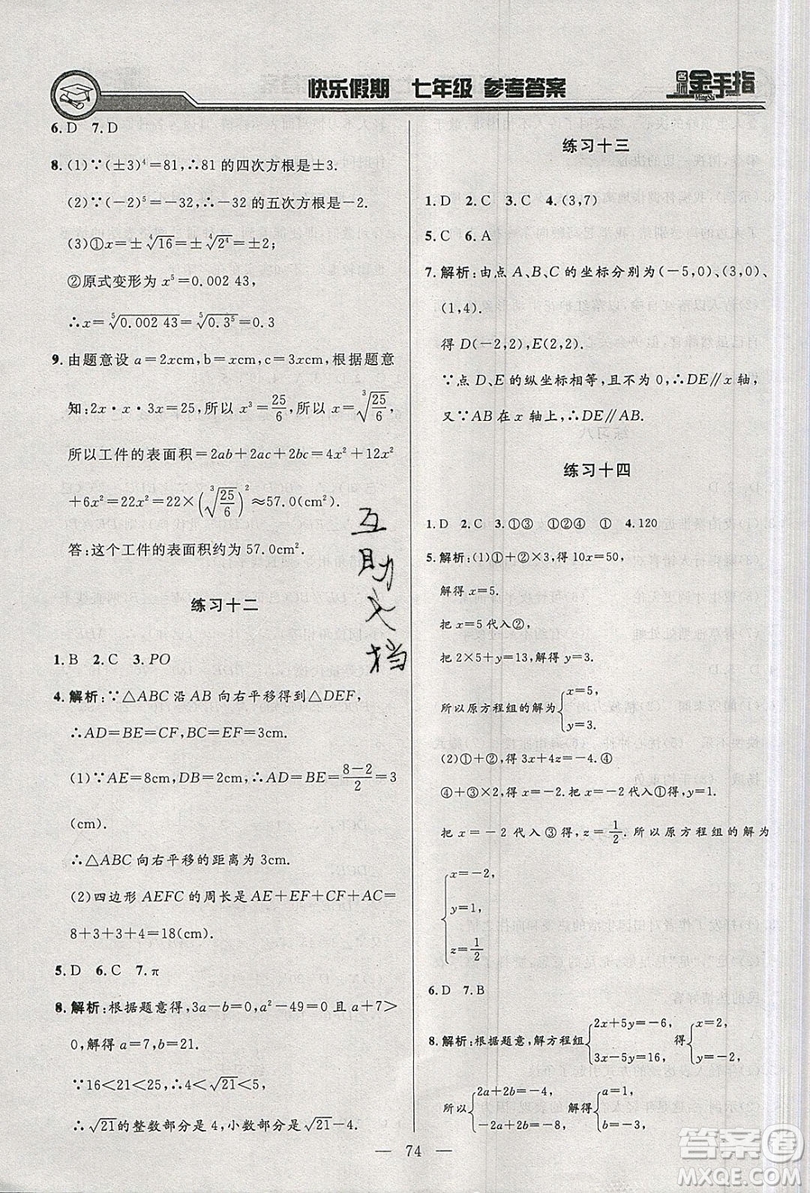 快乐假期 七年级 参考答案
名师金手指
6. D 7. D
8. (1)∵(±3)⁴=81,∴81的四次方根是±3.
(2)∵(-2)⁵=-32,∴-32的五次方根是-2.
(3)①x=±⁴√16=±⁴√2⁴=±2
②原式变形为 x⁵=0.002 43
∴x=⁵√0.002 43=⁵√0.3⁵=0.3
9. 由题意设 a=2xcm,b=xcm,c=3xcm,根据题意
知:2x·x·3x=25,所以 x³=25/6,所以 x=³√(25/6),
所以工件的表面积=2ab+2ac+2bc=4x²+12x²
+6x²=22x²=22×(³√(25/6))²≈57.0(cm²).
答:这个工件的表面积约为57.0cm².
练习十二
1. B 2. C 3. PO
4. 解析:∵△ABC 沿 AB 向右平移得到△DEF,
∴AD=BE=CF,BC=EF=3cm.
(1)∵AE=8cm,DB=2cm,∴AD=BE=(8-2)/2=3
(cm).
∴△ABC向右平移的距离为3cm.
(2)四边形 AEFC 的周长是 AE+EF+CF+AC=
8+3+3+4=18(cm).
5. D 6. C 7. π
8. 解析:根据题意得,3a-b=0,a²-49=0且a+7>
0,解得a=7,b=21.
∵16<21<25,∴4<√21<5.
∴√21的整数部分是4,小数部分是√21-4.
练习十三
1. D 2. C 3. C 4. (3,7)
5. C 6. A
7. 解析:由点 A、B、C 的坐标分别为(-5,0)、(3,0)、
(1,4).
得 D(-2,2),E(2,2).
∵点 D、E 的纵坐标相等,且不为0,∴DE∥x 轴,
又∵AB 在 x 轴上,∴DE∥AB.
练习十四
1. D 2. C 3. ①③ ①②④ ① 4. 120
5. 解析:(1)①+②×3,得10x=50,
解得x=5.
把x=5代入②,
得2×5+y=13,
解得y=3.
所以原方程组的解为{x=5,
y=3.
(2)①+②,得3x+4y=-2④,①+③,得3x+2y=-4⑤,
④-⑤得,y=1,把 y=1 代入④得,x=-2,
把 x=-2 代入③得,z=1/2. 所以原方程组的解为
{x=-2,
y=1,
z=1/2
6. D 7. B
8. 解析:根据题意,解方程组{2x+5y=-6,
3x-5y=16,
得{x=2,
y=-2.
所以{2a+2b=-4,
-2a+2b=-8,
解得{a=1,
b=-3.
互助文档
— 74 —
答案圈
MXQE.COM